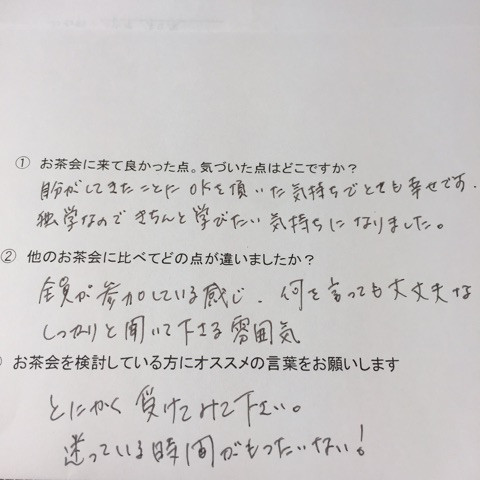 ① お茶会に来て良かった点。気づいた点はどこですか？
自分がしてきたことにOKを頂いた気持ちでとても幸せです.
独学なのできちんと学びたい気持ちになりました。
② 他のお茶会に比べてどの点が違いましたか？
全員が参加している感じ. 何を言っても大丈夫な
しっかりと聞いて下さる雰囲気
お茶会を検討している方にオススメの言葉をお願いします
とにかく受けてみて下さい。
迷っている時間がもったいない！